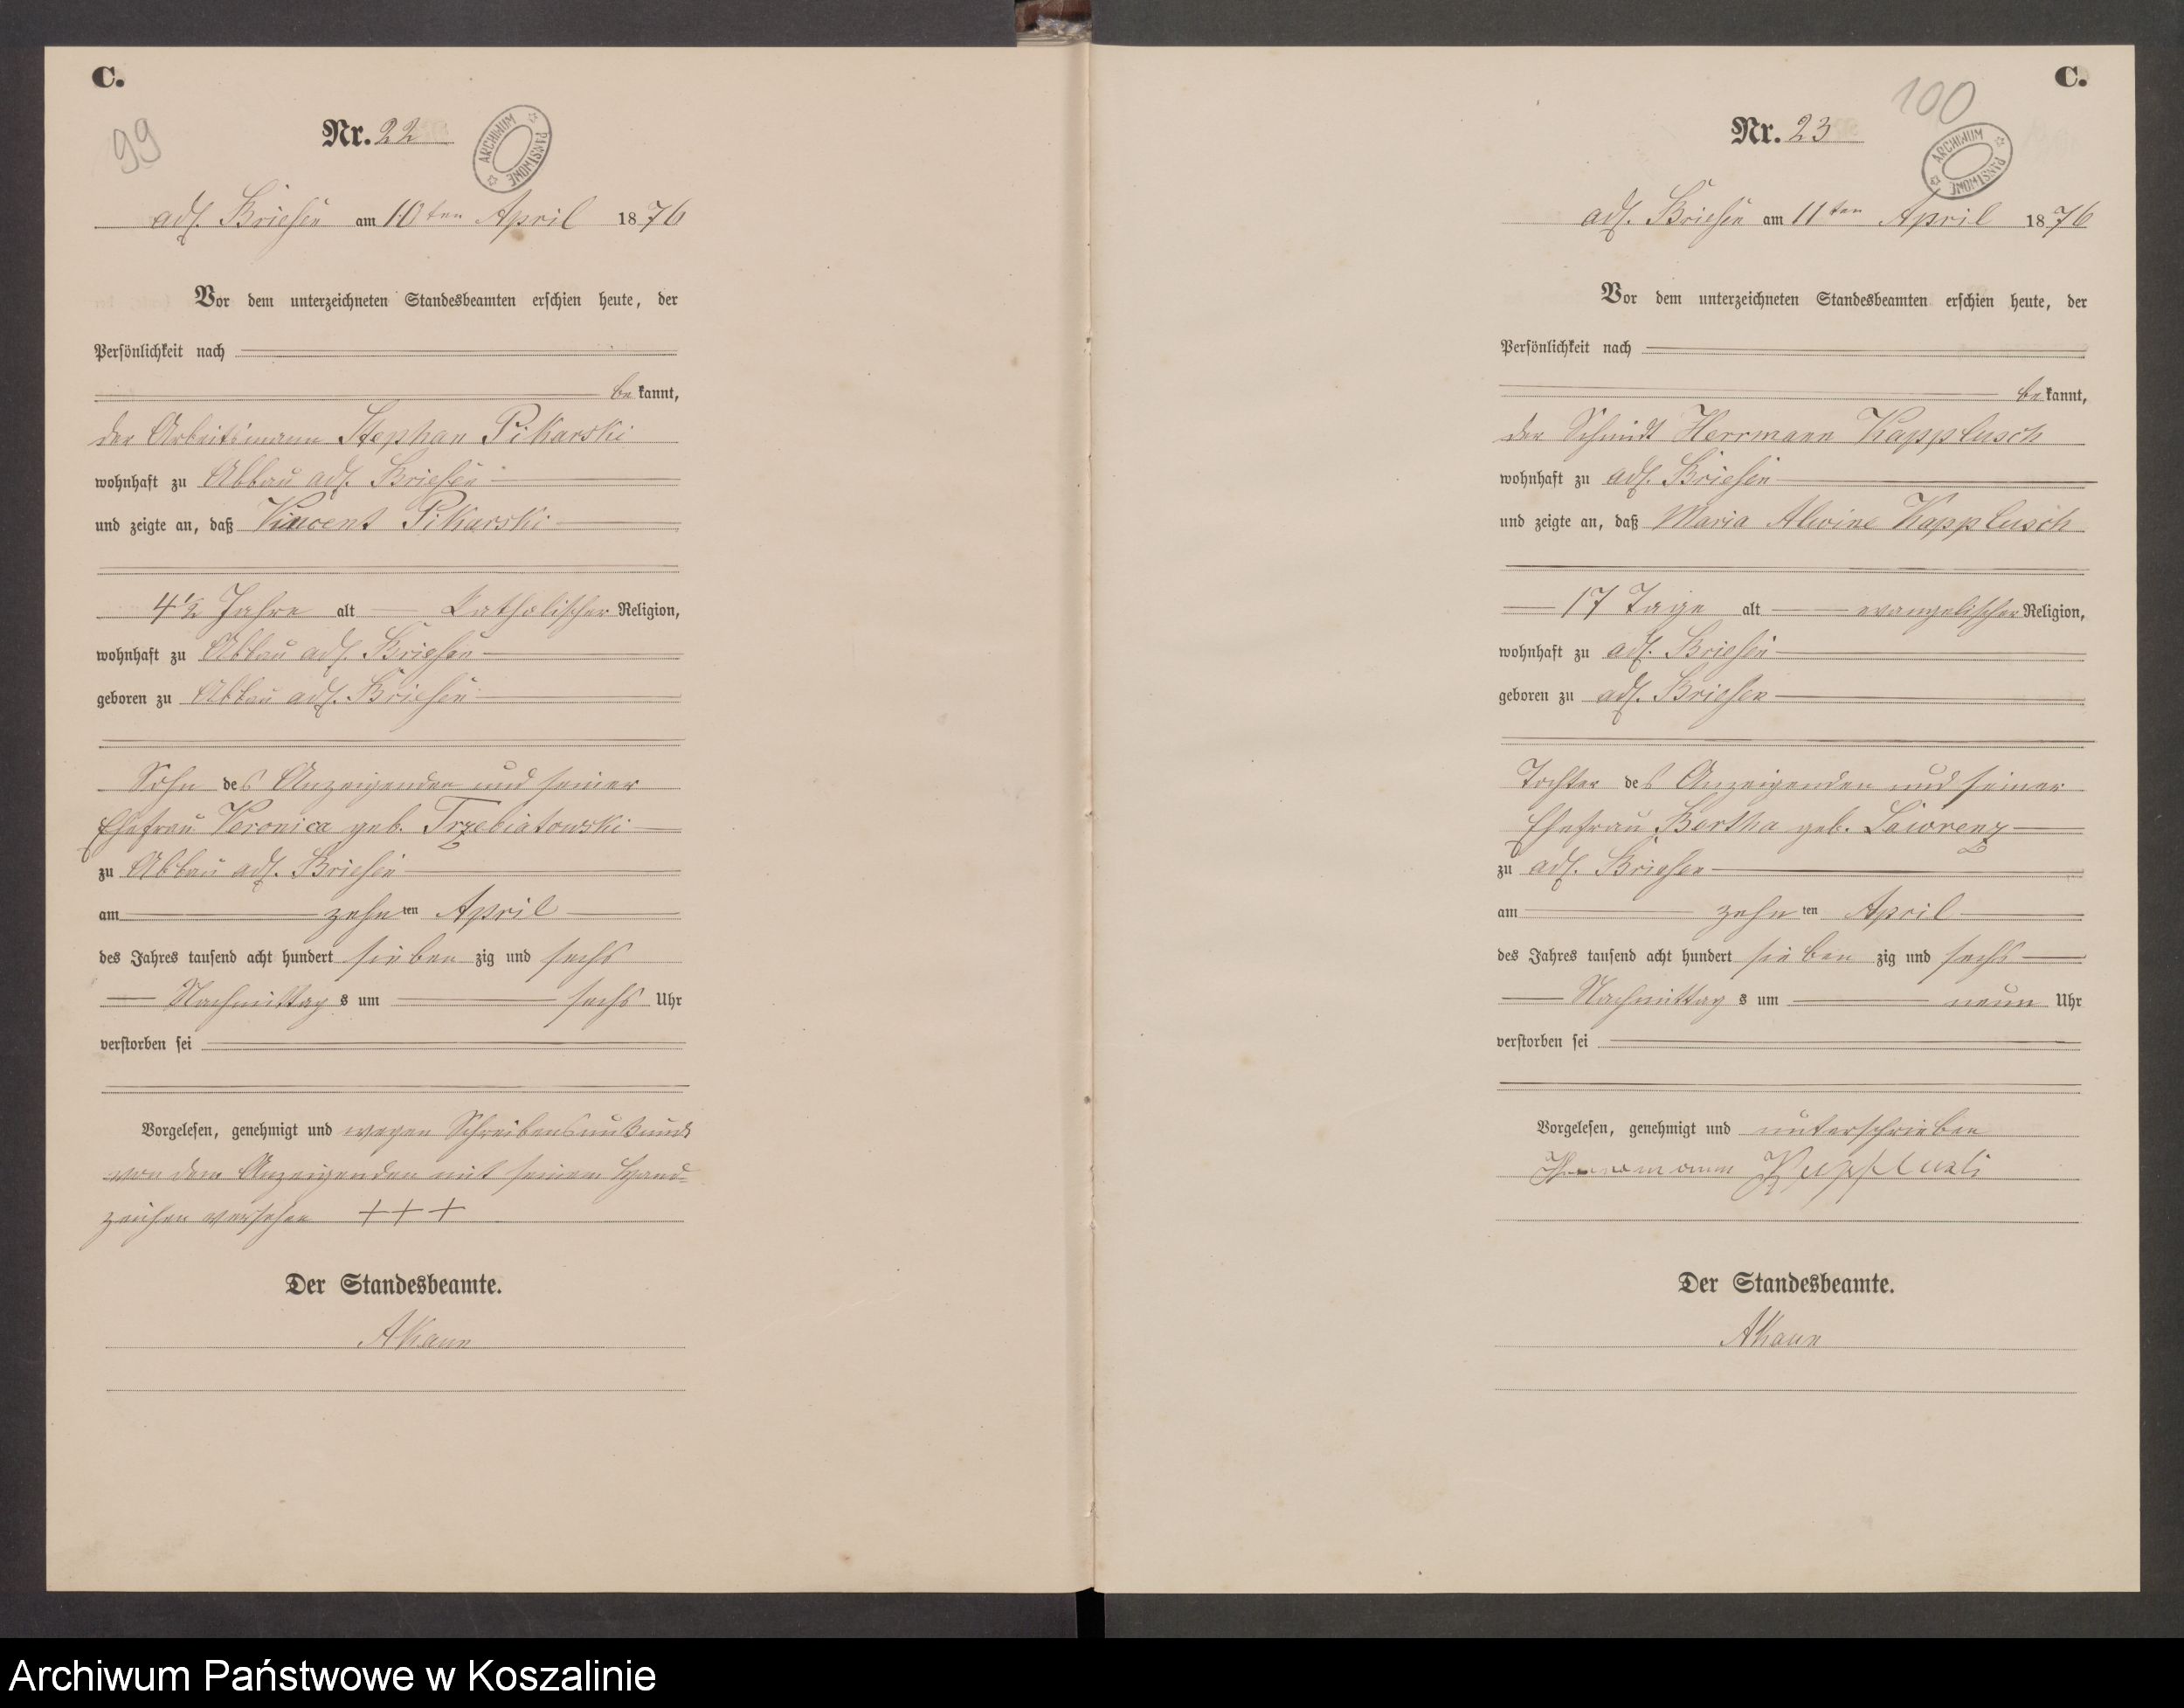 C.
99
Nr. 22
ARCHIWUM PAŃSTWOWE
adl. Briesen am 10ten April 1876
Vor dem unterzeichneten Standesbeamten erschien heute, der
Persönlichkeit nach
bekannt,
der Arbeitsmann Stephan Pikarski
wohnhaft zu Abbau adl. Briesen
und zeigte an, daß Vincent Pikarski
4 1/2 Jahre alt katholischer Religion,
wohnhaft zu Abbau adl. Briesen
geboren zu Abbau adl. Briesen
Sohn des Anzeigenden und seiner
Ehefrau Veronica geb. Trzebiatowski
zu Abbau adl. Briesen
am zehnten April
des Jahres tausend acht hundert siebenzig und sechs
Nachmittags um sechs Uhr
verstorben sei
Vorgelesen, genehmigt und wegen Schreibensunkunde
von dem Anzeigenden mit seinem Hand-
zeichen versehen +++
Der Standesbeamte.
AKaun
C.
100
Nr. 23
ARCHIWUM PAŃSTWOWE
adl. Briesen am 11ten April 1876
Vor dem unterzeichneten Standesbeamten erschien heute, der
Persönlichkeit nach
bekannt,
der Schmidt Herrmann Kapplusch
wohnhaft zu adl. Briesen
und zeigte an, daß Maria Alwine Kapplusch
17 Tage alt evangelischer Religion,
wohnhaft zu adl. Briesen
geboren zu adl. Briesen
Tochter des Anzeigenden und seiner
Ehefrau Bertha geb. Lawrenz
zu adl. Briesen
am zehnten April
des Jahres tausend acht hundert siebenzig und sechs
Nachmittags um neun Uhr
verstorben sei
Vorgelesen, genehmigt und unterschrieben
Der Standesbeamte.
AKaun
Archiwum Państwowe w Koszalinie